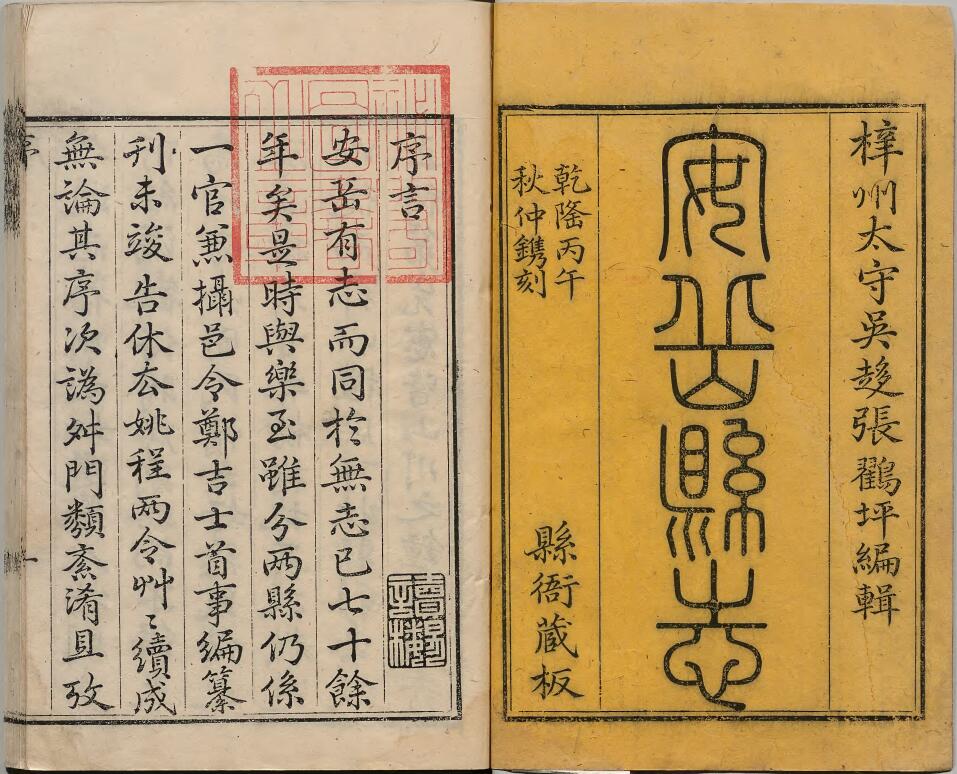 梓州太守吳趍張鸛坪編輯
安岳縣志
乾隆丙午
秋仲鐫刻
縣衙蔵板
序言
安岳有志而同於無志已七十餘
年矣是時與樂至雖分兩縣仍係
一官兼攝邑令鄭吉士首事編纂
刋未竣告休厺姚程兩令艸〻續成
無論其序次譌舛門類紊淆且攷
序
一